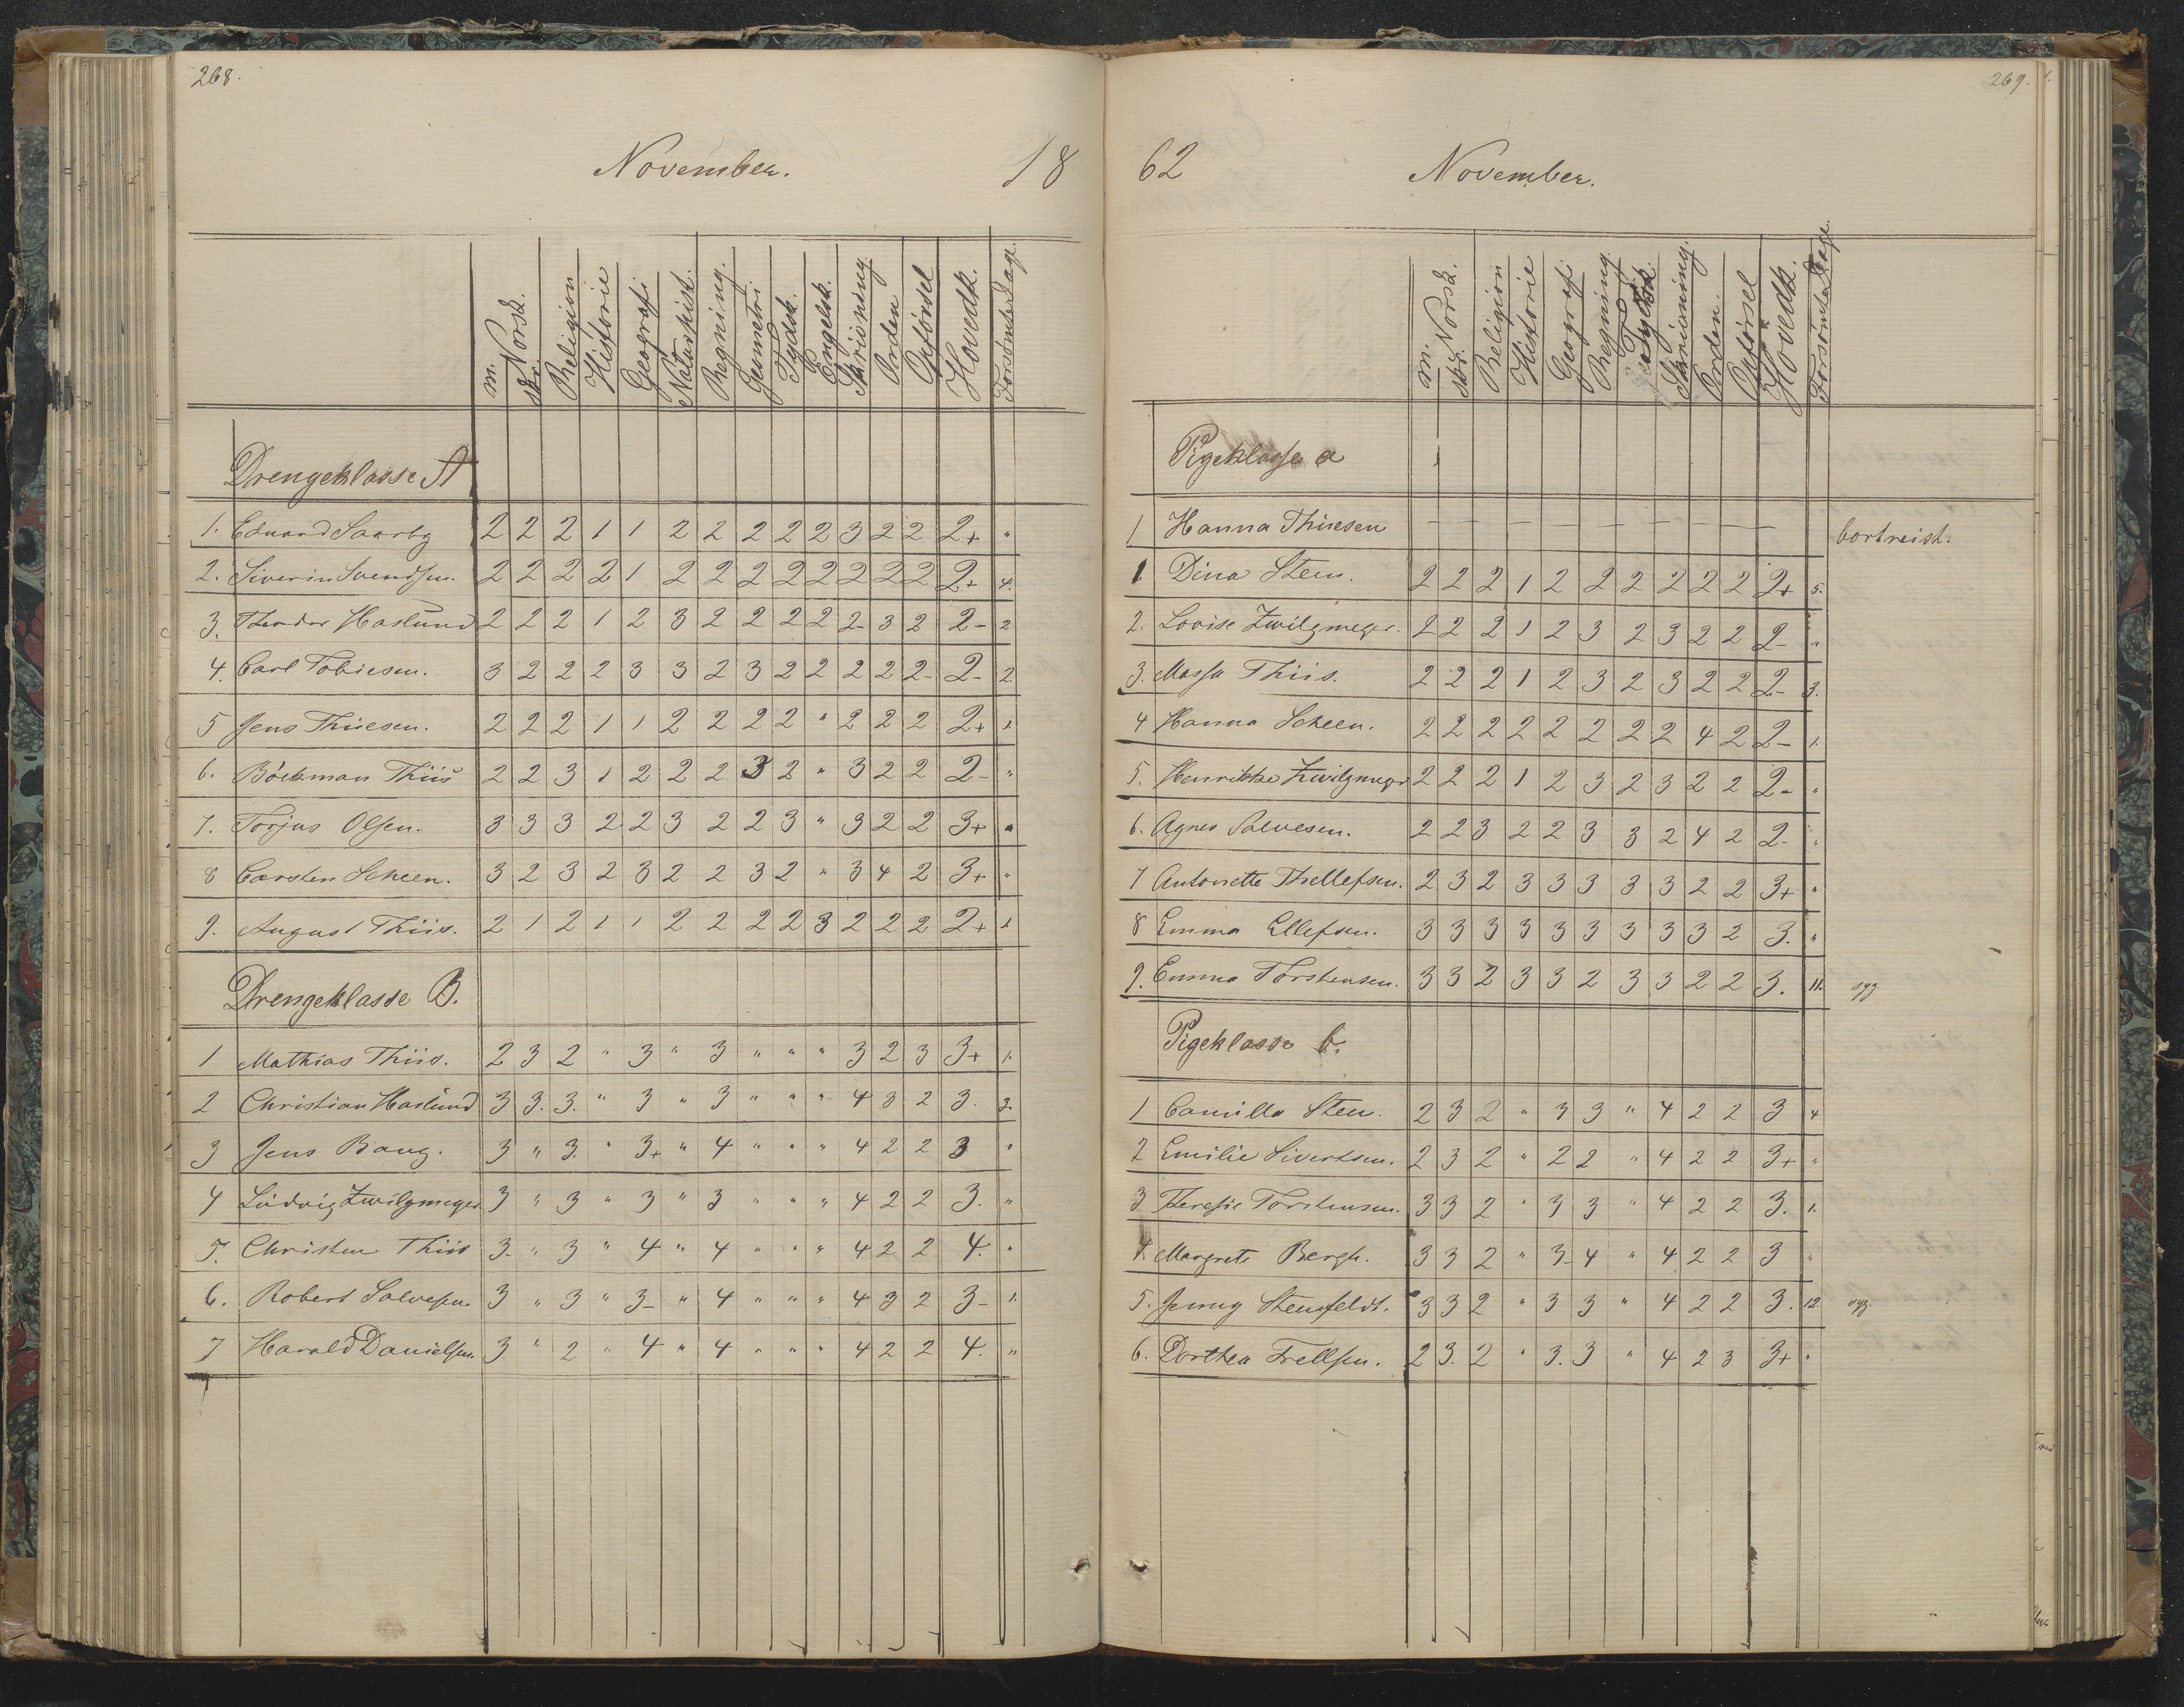 268.
November. 18
m. Norsk. skr. Religion Historie Geografi Naturhist. Regning. Geometri Tydsk. Engelsk. Skrivning Orden Opförsel Hovedk. Forsömte Dage.
Drengeklasse A
1. Eduard Saarby 2 2 2 1 1 2 2 2 2 2 3 2 2 2+ "
2. Siverin Svendsen. 2 2 2 2 1 2 2 2 2 2 2 2 2 2+ 4.
3. Theodor Haslund 2 2 2 1 2 3 2 2 2 2 2- 3 2 2- 2
4. Carl Tobiesen. 3 2 2 2 3 3 2 3 2 2 2 2 2- 2- 2
5 Jens Thiesen. 2 2 2 1 1 2 2 2 2 " 2 2 2 2+ 1.
6. Böckman Thiis 2 2 3 1 2 2 2 3 2 " 3 2 2 2- "
7. Torjus Olsen. 3 3 3 2 2 3 2 2 3 " 3 2 2 3+ "
8 Carsten Scheen. 3 2 3 2 3 2 2 3 2 " 3 4 2 3+ "
9. August Thiis. 2 1 2 1 1 2 2 2 2 3 2 2 2 2+ 1
Drengeklasse B.
1 Mathias Thiis. 2 3 2 " 3 " 3 " " " 3 2 3 3+ 1.
2 Christian Haslund 3 3. 3. " 3 " 3 " " " 4 3 2 3. 3.
3 Jens Bang. 3 " 3. " 3+ " 4 " " " 4 2 2 3 "
4 Ludvig Zwilgmeyer. 3 " 3 " 3 " 3 " " " 4 2 2 3. "
5. Christen Thiis 3. " 3 " 4 " 4 " " " 4 2 2 4. "
6. Robert Salvesen. 3 " 3 " 3- " 4 " " " 4 3 2 3- 1.
7 Harald Danielsen. 3 " 2 " 4 " 4 " " " 4 2 2 4. "
269.
62 November.
m. Norsk. skr. Religion Historie Geografi Regning Tydsk. Skrivning. Orden. Opförsel Hovedk. Forsömte Dage.
Pigeklasse a
1 Hanna Thiesen — — — — — — — — — bortreist.
1. Dina Steen. 2 2 2 1 2 2 2 2 2 2 2+ 5.
2. Lovise Zwilgmeyer. 2 2 2 1 2 3 2 3 2 2 2- "
3. Massa Thiis. 2 2 2 1 2 3 2 3 2 2 2- 3.
4 Hanna Scheen. 2 2 2 2 2 2 2 2 4 2 2- 1.
5. Henrikke Zwilgmeyer 2 2 2 1 2 3 2 3 2 2 2- "
6. Agnes Salvesen. 2 2 3 2 2 3 3 2 4 2 2- "
7 Antonette Thellefsen. 2 3 2 3 3 3 3 3 2 2 3+ "
8 Emma Ellefsen. 3 3 3 3 3 3 3 3 3 2 3. "
9. Emma Torstensen. 3 3 2 3 3 2 3 3 2 2 3. 11. syg
Pigeklasse b.
1 Camilla Steen. 2 3 2 " 3 3 " 4 2 2 3 4
2 Emilie Sivertsen. 2 3 2 " 2 2 " 4 2 2 3+ "
3 Theresie Torstensen. 3 3 2 " 3 3 " 4 2 2 3. 1.
4. Margrete Bergh. 3 3 2 " 3- 4 " 4 2 2 3 "
5. Jenny Stensfeldt. 3 3 2 " 3 3 " 4 2 2 3. 12. syg.
6. Dorthea Trellsen. 2 3. 2 " 3. 3 " 4 2 3 3+ "